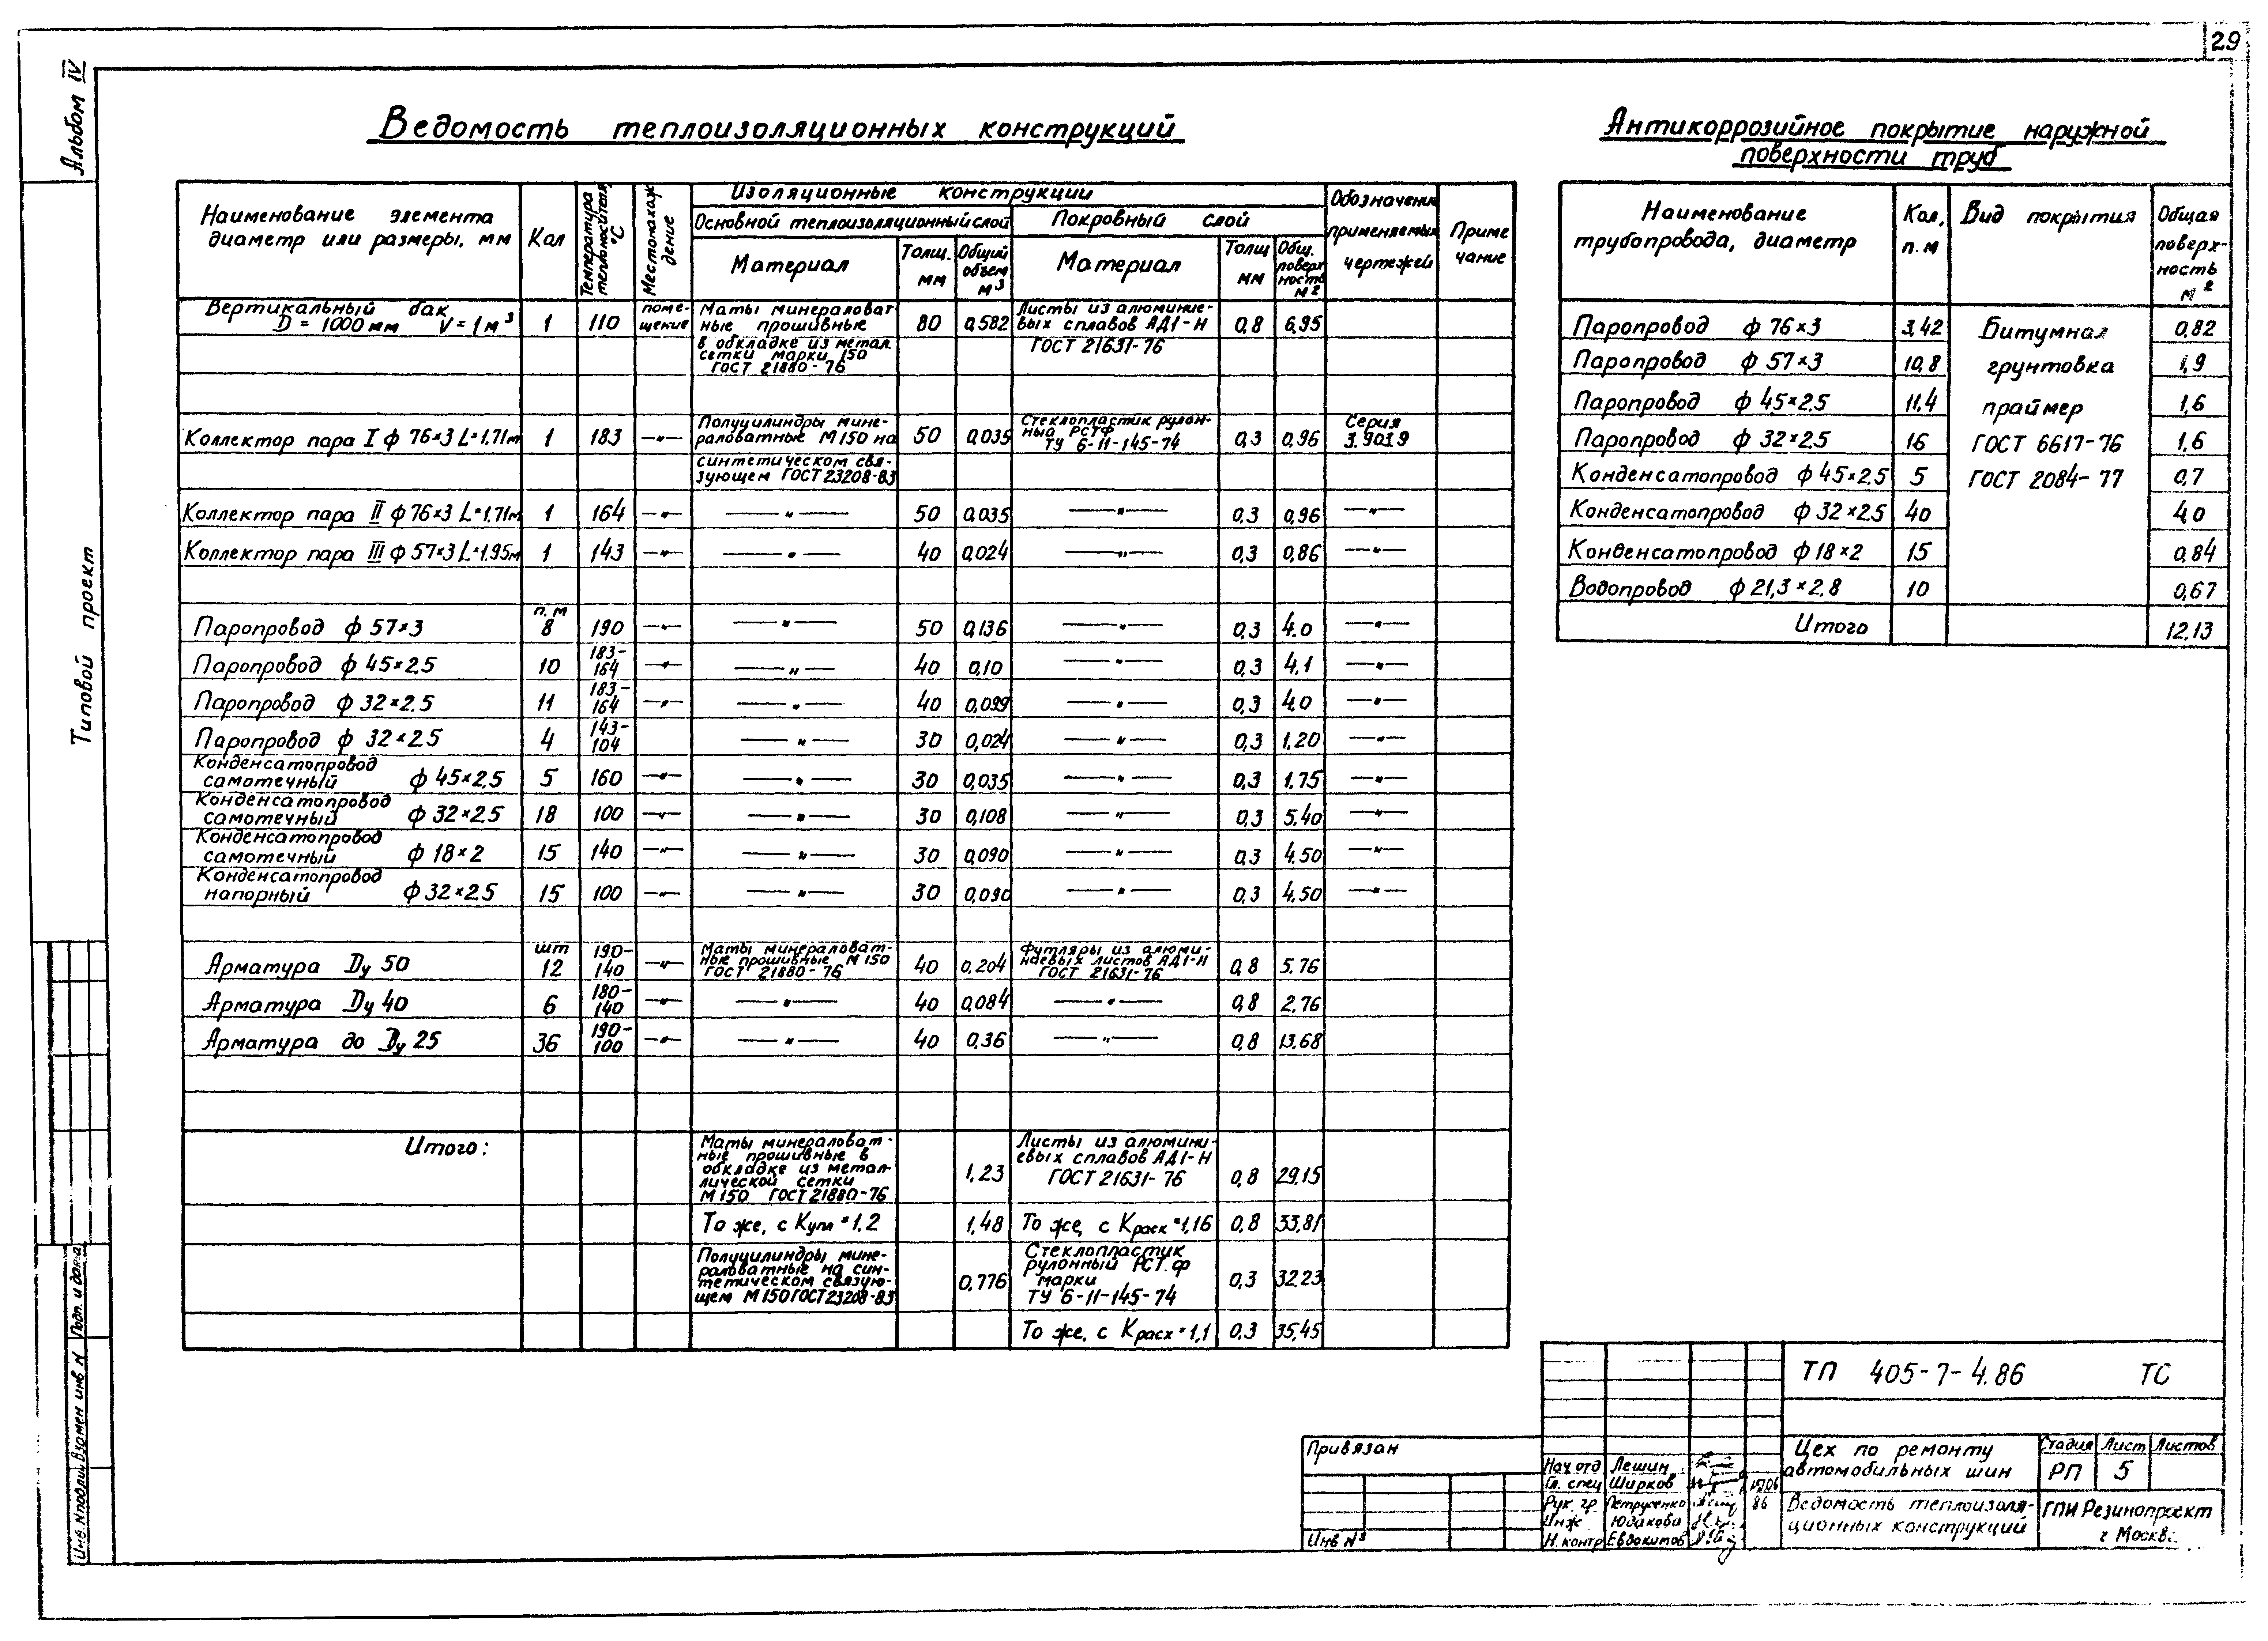 29
Альбом IV
Типовой проект
Ведомость теплоизоляционных конструкций
Наименование элемента диаметр или размеры, мм | Кол | Температура теплоносителя °С | Местонахождение | Изоляционные конструкции | Обозначение применяемых чертежей | Примечание
Основной теплоизоляционный слой | Покровный слой
Материал | Толщ. мм | Общий объем м3 | Материал | Толщ мм | Общ. поверхность м2
Вертикальный бак D = 1000 мм V = 1 м3 | 1 | 110 | помещение | Маты минераловатные прошивные | 80 | 0,582 | Листы из алюминиевых сплавов АД1-Н | 0,8 | 6,95
в обкладке из метал. сетки марки 150 ГОСТ 21880-76 | ГОСТ 21631-76
Коллектор пара I ф 76×3 L=1.71м | 1 | 183 | —"— | Полуцилиндры минераловатные М150 на | 50 | 0,035 | Стеклопластик рулонный РСТФ ТУ 6-11-145-74 | 0,3 | 0,96 | Серия 3.903.9
синтетическом связующем ГОСТ 23208-83
Коллектор пара II ф 76×3 L=1.71м | 1 | 164 | —"— | —"— | 50 | 0,035 | —"— | 0,3 | 0,96 | —"—
Коллектор пара III ф 57×3 L=1.95м | 1 | 143 | —"— | —"— | 40 | 0,024 | —"— | 0,3 | 0,86 | —"—
Паропровод ф 57×3 | п.м 8 | 190 | —"— | —"— | 50 | 0,136 | —"— | 0,3 | 4.0 | —"—
Паропровод ф 45×2.5 | 10 | 183-164 | —"— | —"— | 40 | 0,10 | —"— | 0,3 | 4.1 | —"—
Паропровод ф 32×2.5 | 11 | 183-164 | —"— | —"— | 40 | 0,099 | —"— | 0,3 | 4,0 | —"—
Паропровод ф 32×2.5 | 4 | 143-104 | —"— | —"— | 30 | 0,024 | —"— | 0,3 | 1.20 | —"—
Конденсатопровод самотечный ф 45×2,5 | 5 | 160 | —"— | —"— | 30 | 0,035 | —"— | 0,3 | 1.75 | —"—
Конденсатопровод самотечный ф 32×2.5 | 18 | 100 | —"— | —"— | 30 | 0,108 | —"— | 0.3 | 5.40 | —"—
Конденсатопровод самотечный ф 18×2 | 15 | 140 | —"— | —"— | 30 | 0,090 | —"— | 0,3 | 4.50 | —"—
Конденсатопровод напорный ф 32×2.5 | 15 | 100 | —"— | —"— | 30 | 0,090 | —"— | 0,3 | 4.50 | —"—
Арматура Dу 50 | шт 12 | 190-140 | —"— | Маты минераловатные прошивные М 150 ГОСТ 21880-76 | 40 | 0,204 | Футляры из алюминиевых листов АД1-Н ГОСТ 21631-76 | 0,8 | 5.76
Арматура Dу 40 | 6 | 180-140 | —"— | —"— | 40 | 0,084 | —"— | 0,8 | 2.76
Арматура до Dу 25 | 36 | 190-100 | —"— | —"— | 40 | 0,36 | —"— | 0,8 | 13.68
Итого: | Маты минераловатные прошивные в обкладке из металлической сетки М150 ГОСТ 21880-76 | 1,23 | Листы из алюминиевых сплавов АД1-Н ГОСТ 21631-76 | 0,8 | 29.15
То же, с Купл=1.2 | 1,48 | То же, с Краск=1,16 | 0,8 | 33,81
Полуцилиндры минераловатные на синтетическом связующем М150 ГОСТ 23208-83 | 0,776 | Стеклопластик рулонный РСТ.ф марки ТУ 6-11-145-74 | 0,3 | 32.23
То же, с Красх=1,1 | 0,3 | 35,45
Антикоррозийное покрытие наружной
поверхности труб
Наименование трубопровода, диаметр | Кол, п.м | Вид покрытия | Общая поверхность м2
Паропровод ф 76×3 | 3,42 | Битумная | 0,82
Паропровод ф 57×3 | 10,8 | грунтовка | 1,9
Паропровод ф 45×2.5 | 11,4 | праймер | 1,6
Паропровод ф 32×2.5 | 16 | ГОСТ 6617-76 | 1,6
Конденсатопровод ф 45×2.5 | 5 | ГОСТ 2084-77 | 0,7
Конденсатопровод ф 32×2.5 | 40 | 4,0
Конденсатопровод ф 18×2 | 15 | 0,84
Водопровод ф 21,3×2.8 | 10 | 0,67
Итого | 12.13
Привязан
Инв №
ТП 405-7-4.86 ТС
Нач отд Лешин
Гл. спец Ширков
Рук. гр Петрусенко 86
Инж Юдакова
Н. контр Евдокимов
Цех по ремонту
автомобильных шин
Стадия Лист Листов
РП 5
Ведомость теплоизоля-
ционных конструкций
ГПИ Резинопроект
г Москва
Инв. N подлин Взамен инв N Подп. и дата